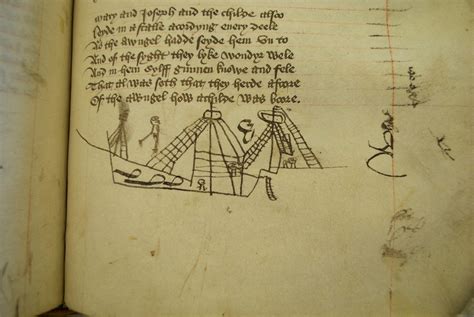 mary and Joseph and the childe also
leyde in a stalle acordyng euery deele
As the awngel hadde seyde hem vn to
And of the syght they lyke wondyr wele
And in hem sylff gunnen knowe and fele
That al was soth that they herde afore
Of the awngel how a childe was boore